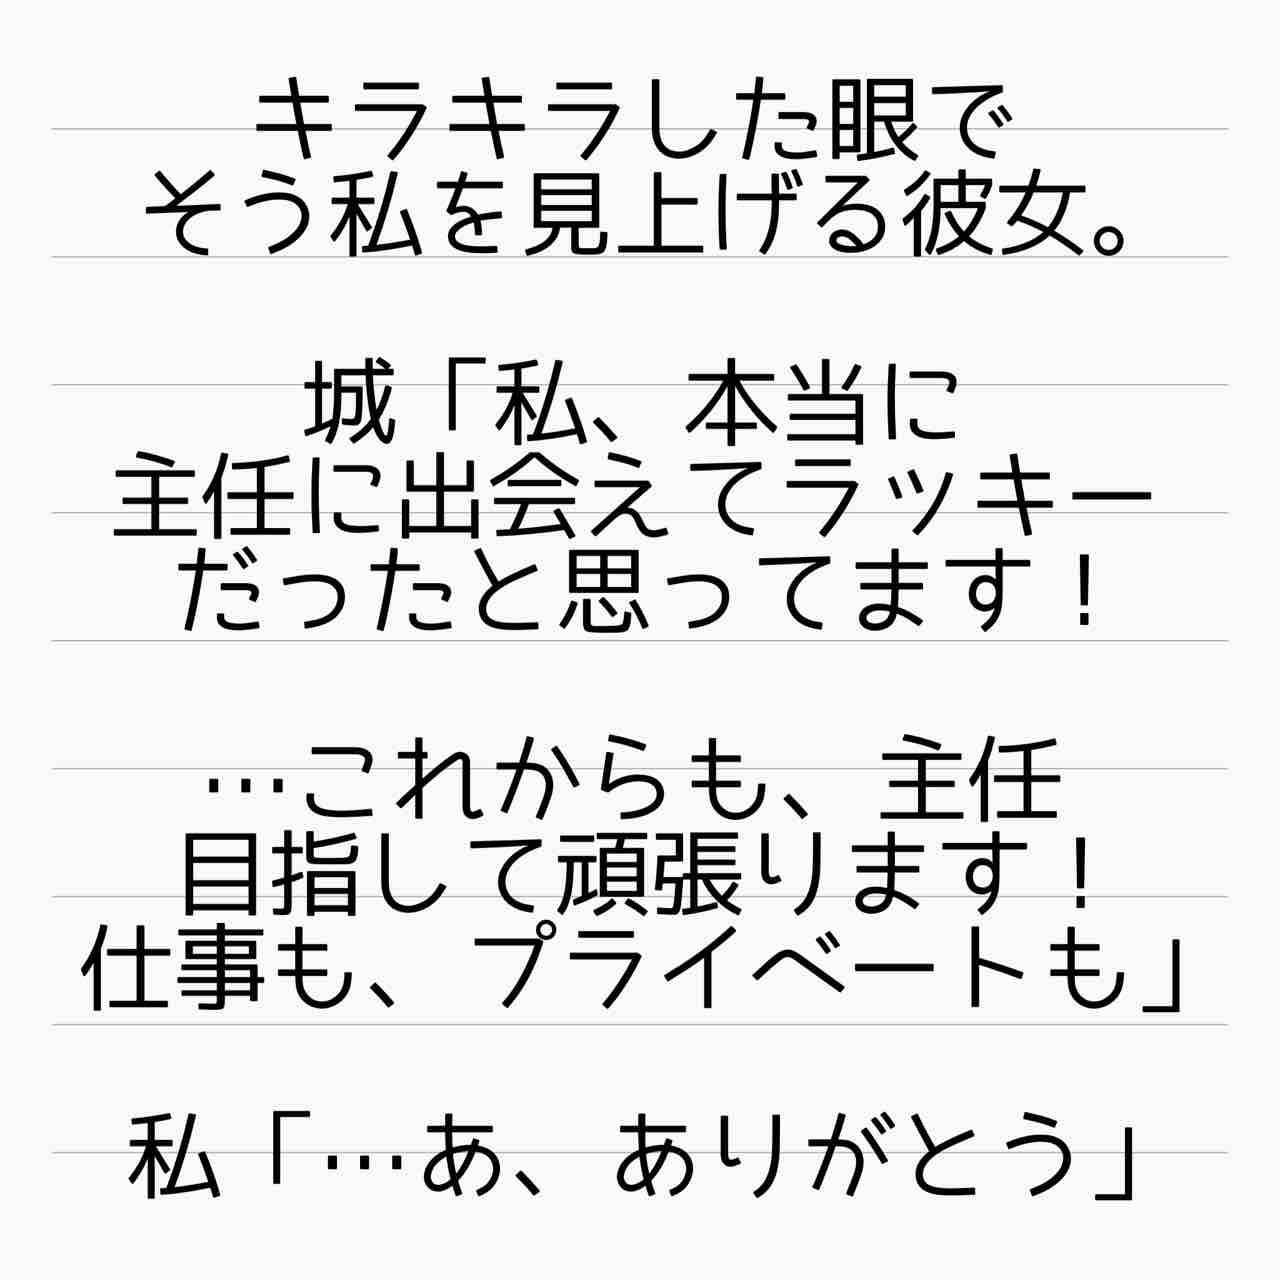 キラキラした眼で
そう私を見上げる彼女。
城「私、本当に
主任に出会えてラッキー
だったと思ってます！
…これからも、主任
目指して頑張ります！
仕事も、プライベートも」
私「…あ、ありがとう」